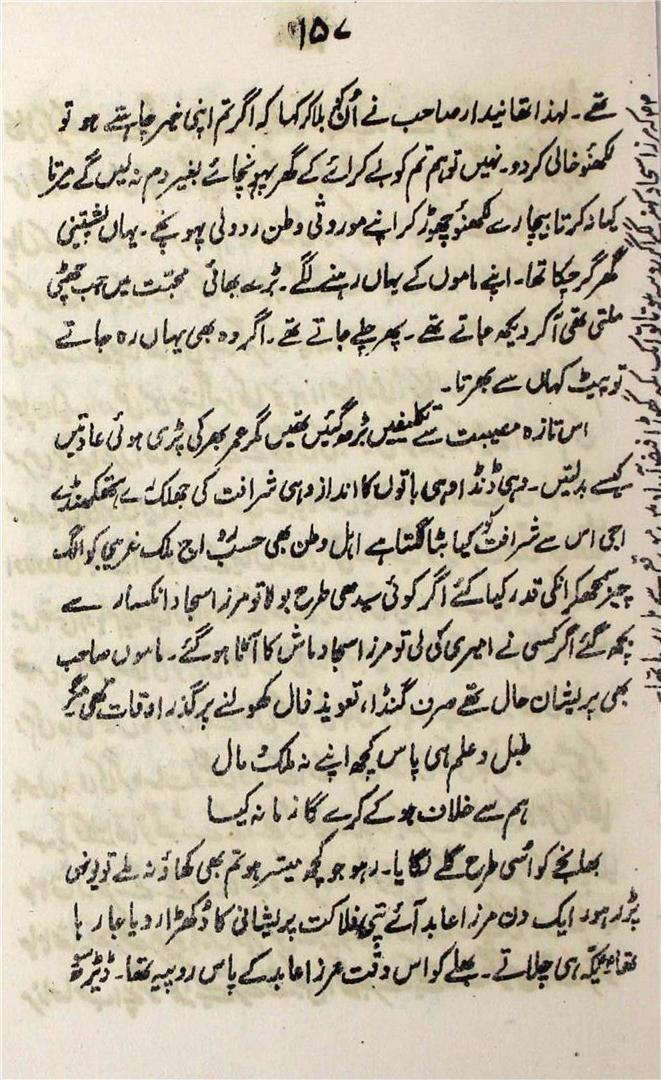 ۱۵۷
تھے۔ لہذا تھانیدار صاحب نے اُن کو بلا کر کہا کہ اگر تم اپنی خیر چاہتے ہو تو
لکھنؤ خالی کر دو۔ نہیں تو ہم تم کو بے کرائے کے گھر پہونچائے بغیر دم نہ لیں گے مرتا
کیا نہ کرتا بیچارے لکھنؤ چھوڑ کر اپنے موروثی وطن ردولی پہونچے۔ یہاں پشتینی
گھر گر چکا تھا۔ اپنے ماموں کے یہاں رہنے لگے۔ بڑے بھائی محبت میں جب چھٹی
ملتی تھی آ کر دیکھ جاتے تھے۔ پھر چلے جاتے تھے۔ اگر وہ بھی یہاں رہ جاتے
تو پیٹ کہاں سے بھرتا۔
اس تازہ مصیبت سے تکلیفیں بڑھ گئیں تھیں مگر عمر بھر کی پڑی ہوئی عادتیں
کیسے بدلتیں۔ وہی ڈنڈا وہی باتوں کا انداز وہی شرافت کی جھلک وہی ہتھکھنڈے
اجی اس سے شرافت کو کیا بٹا لگتا ہے اہل وطن بھی حسب رواج ملک غریبی کو الگ
چیز سمجھ کر انکی قدر کیا کئے اگر کوئی سیدھی طرح بولا تو مرزا سجاد انکسار سے
بچھ گئے اگر کسی نے امیری کی لی تو مرزا سجاد ماش کا آٹا ہو گئے۔ ماموں صاحب
بھی پریشان حال تھے صرف گنڈا، تعویذ فال کھولنے پر گذر اوقات تھی مگر
طبل و علم ہی پاس کچھ اپنے نہ ملک و مال
ہم سے خلاف ہو کے کرے گا زمانہ کیا
بھانجے کو اُسی طرح گلے لگایا۔ رہو جو کچھ میسر ہو تم بھی کھاؤ نہ ملے تو یوں ہی
پڑ رہو۔ ایک دن مرزا عابد آئے فلاکت پریشانی کا دُکھڑا رویا جا رہا
تھا ہی چلاتے۔ بھلے کو اس وقت مرزا عابد کے پاس روپیہ تھا۔ ڈیڑھ سو